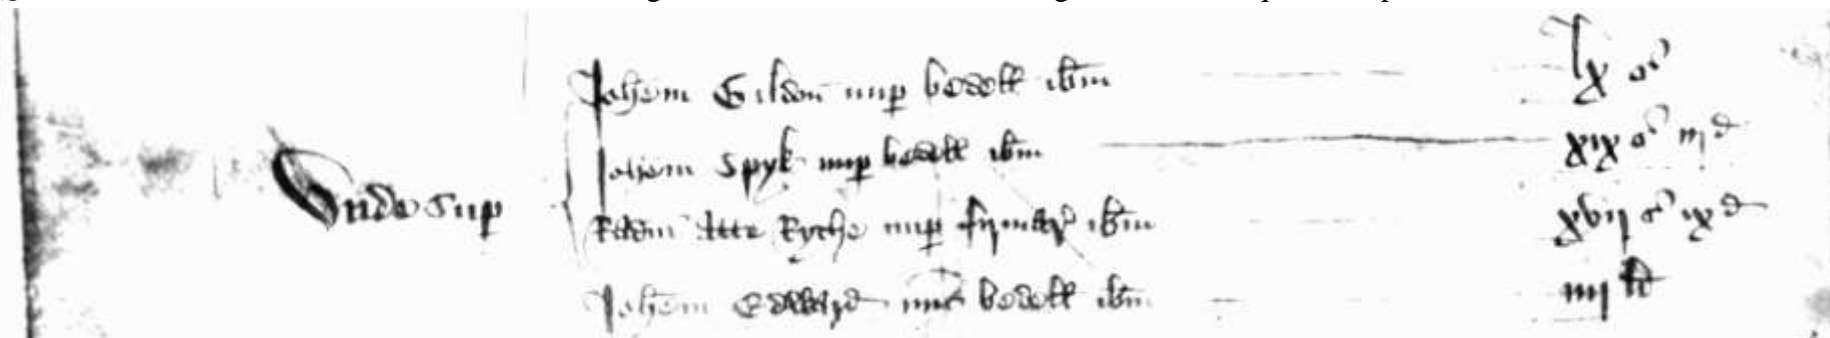 Unde sup
Johem Gildon nup bedell ibm lx s
Johem Spyk nup bedell ibm xix s iij d
Adam Atte Ryche nup firmar ibm xvij s ix d
Johem Edward nuc bedell ibm iiij li